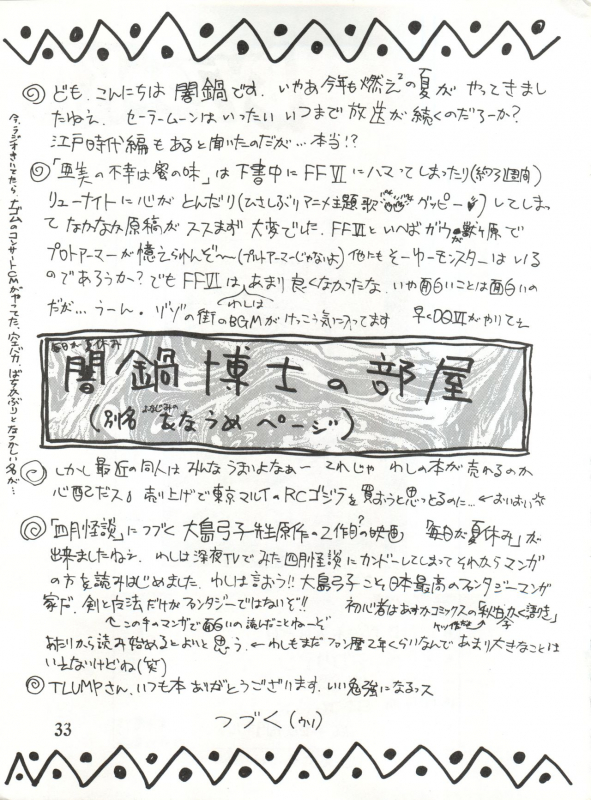 ども、こんにちは 闇鍋です。いやあ今年も燃え²の夏が やってきまし
たねえ。セーラームーンはいったい いつまで 放送が 続くのだろーか?
江戸時代編もあると聞いたのだが…本当!?
「亜美の不幸は蜜の味」は下書中にFFⅥにハマってしまったり(約3週間)
リューナイトに心がとんだり(ひさしぶりアニメ主題歌 グッピー♥)してしまっ
て なかなか原稿が ススまず 大変でした。FFⅥといえばガウが獣ヶ原で
プロトアーマーが憶えられんぞ〜(プルトアーマーじゃないよ)他にもそーゆーモンスターはいる
のであろうか?でもFFⅥはあまり良くなかったな。いや面白いことは面白いの
わしは
だが…うーん。ゾゾの街のBGMがけっこう気に入ってます 早くDQⅥがやりてえ
毎日が夏休み
闇鍋博士の部屋
(別名 あなうめ ページ)
しかし最近の同人はみんなうまいよなあー これじゃ わしの本が売れるのか
心配だス。売り上げで東京マルイのRCゴジラを買おうと思っとるのに…←おいおい
「四月怪談」につづく大島弓子先生原作の2作目?の映画 「毎日が夏休み」が
出来ましたねえ。わしは深夜TVでみた四月怪談にカンドーしてしまってそれからマンガ
の方を読みはじめました。わしは言おう!!大島弓子こそ日本最高のファンタジーマンガ
家だ。剣と魔法だけがファンタジーではないぞ!! 初心者はあすかコミックスの「秋日子かく語りき」
←この手のマンガで面白いの読んだことねーぞ
あたりから読み始めるとよいと思う。←わしもまだファン歴2年くらいなんであまり大きなことは
いえないけどね(笑)
TLUMPさん、いつも本ありがとうございます。いい勉強になるっス
つづく(ウソ)
33
今、ラジオきいてたら ナゴムのコンサートCMがやってた。空手バカ、ばちかぶりとなつかしい名が…